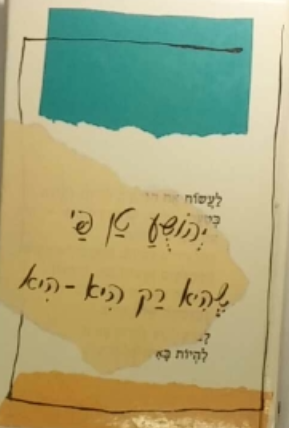 לַעֲשׂוֹת
יְהוֹשֻׁעַ טַן פַּי
שֶׁהִיא רַק הִיא-הִיא
לִהְיוֹת